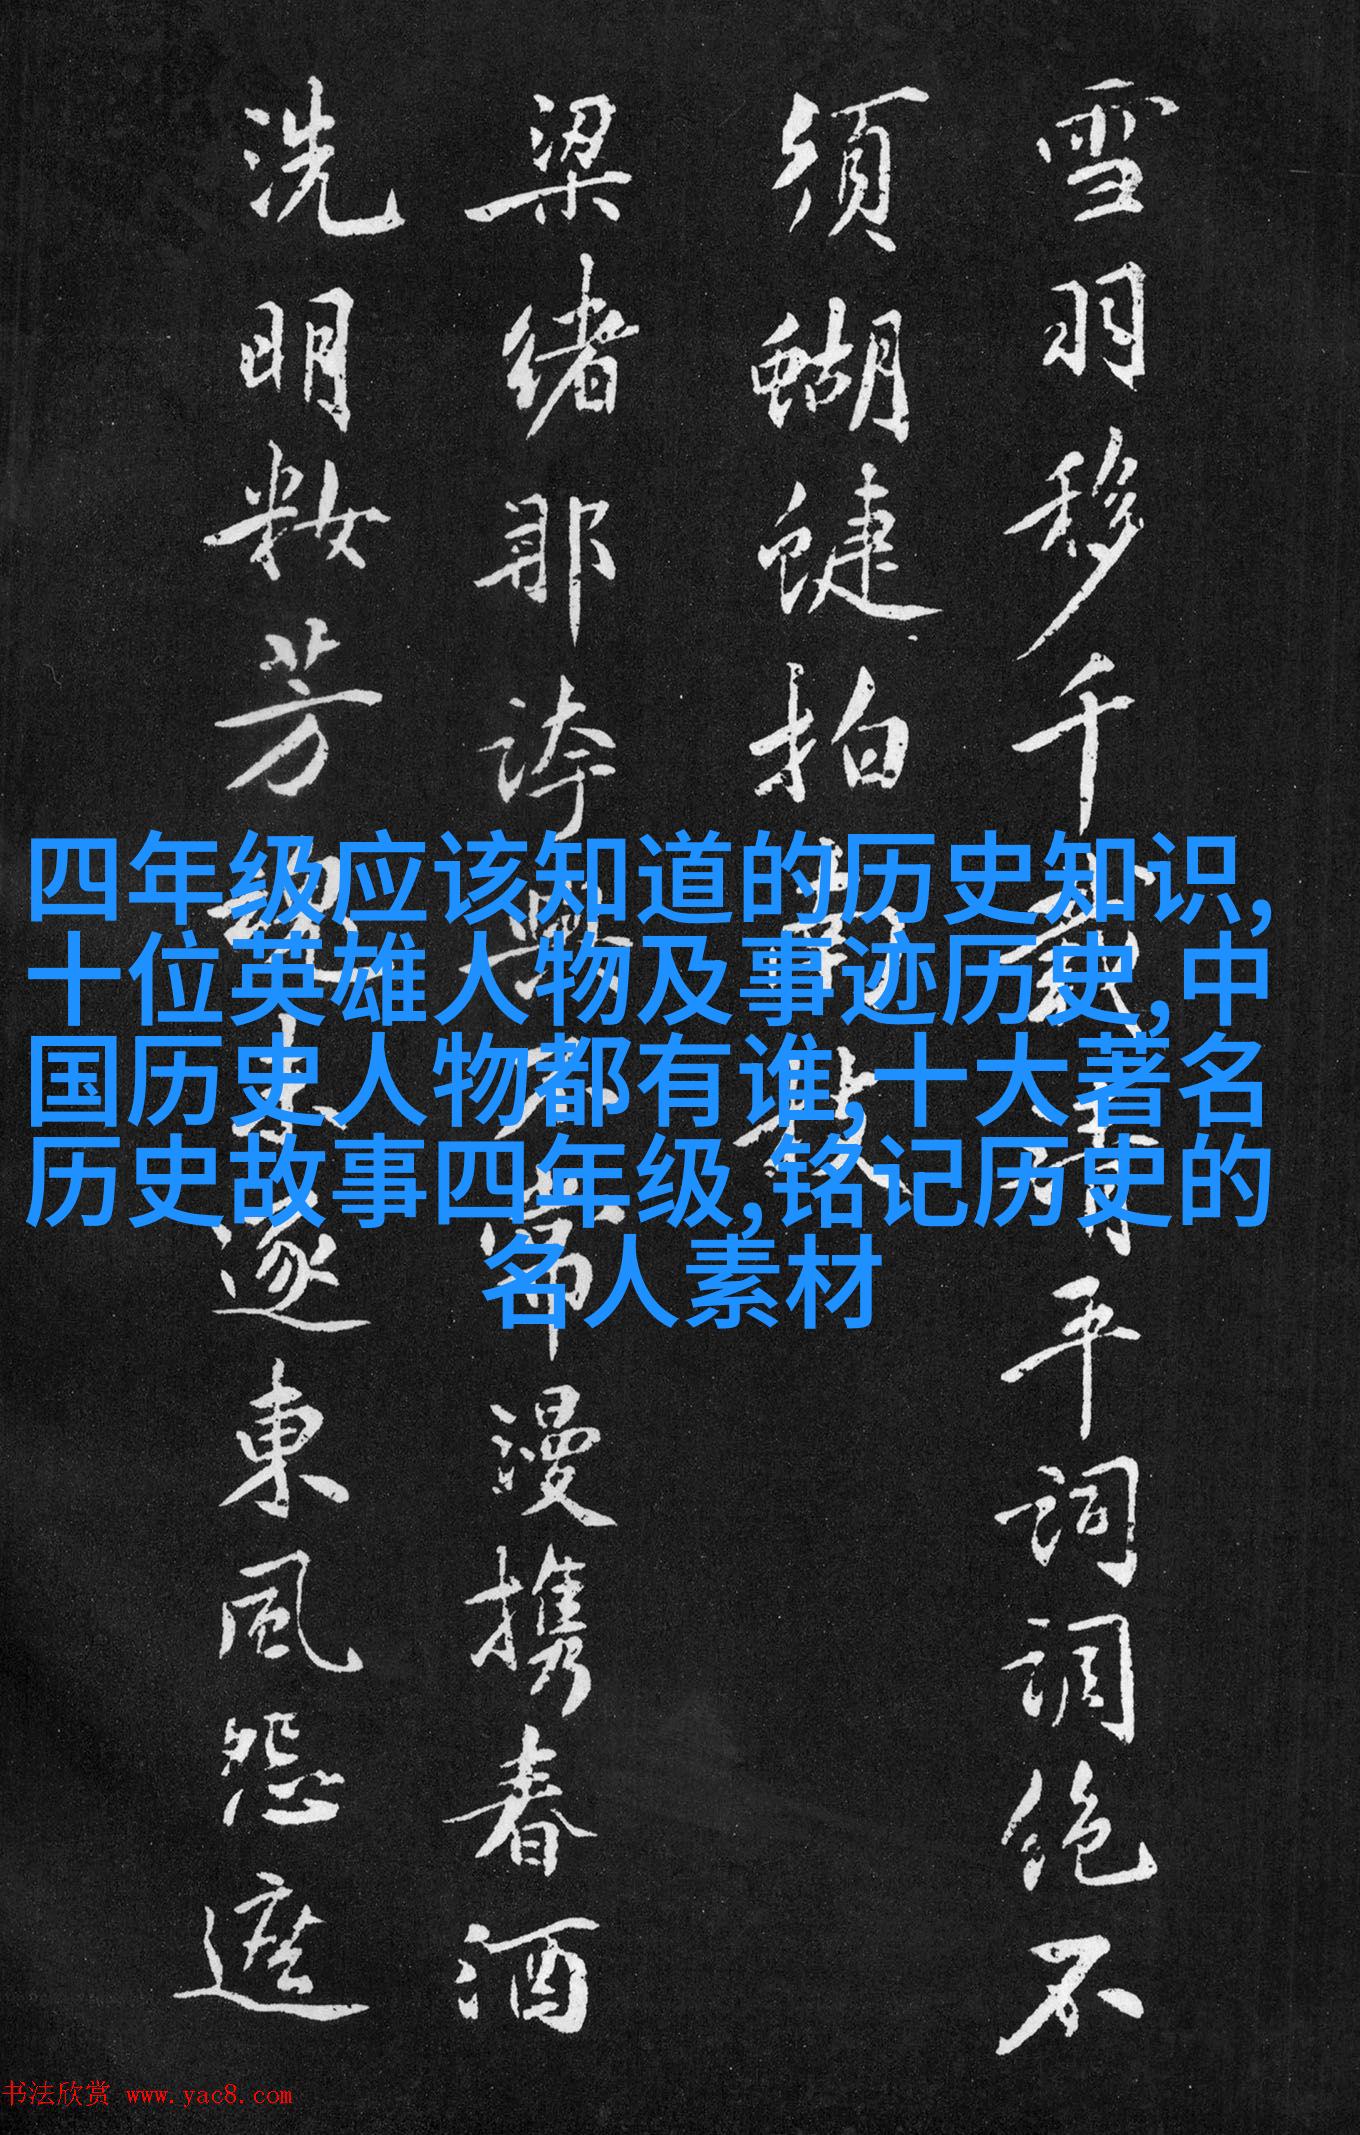 雪羽移千平詞調絶不
須蝴蜨拍
梁緒那誇興漫携春酒
洗明粧芳逐東風怨遮
四年级应该知道的历史知识,
十位英雄人物及事迹历史,中
国历史人物都有谁,十大著名
历史故事四年级,铭记历史的
名人素材
书法欣赏 www.yac8.com